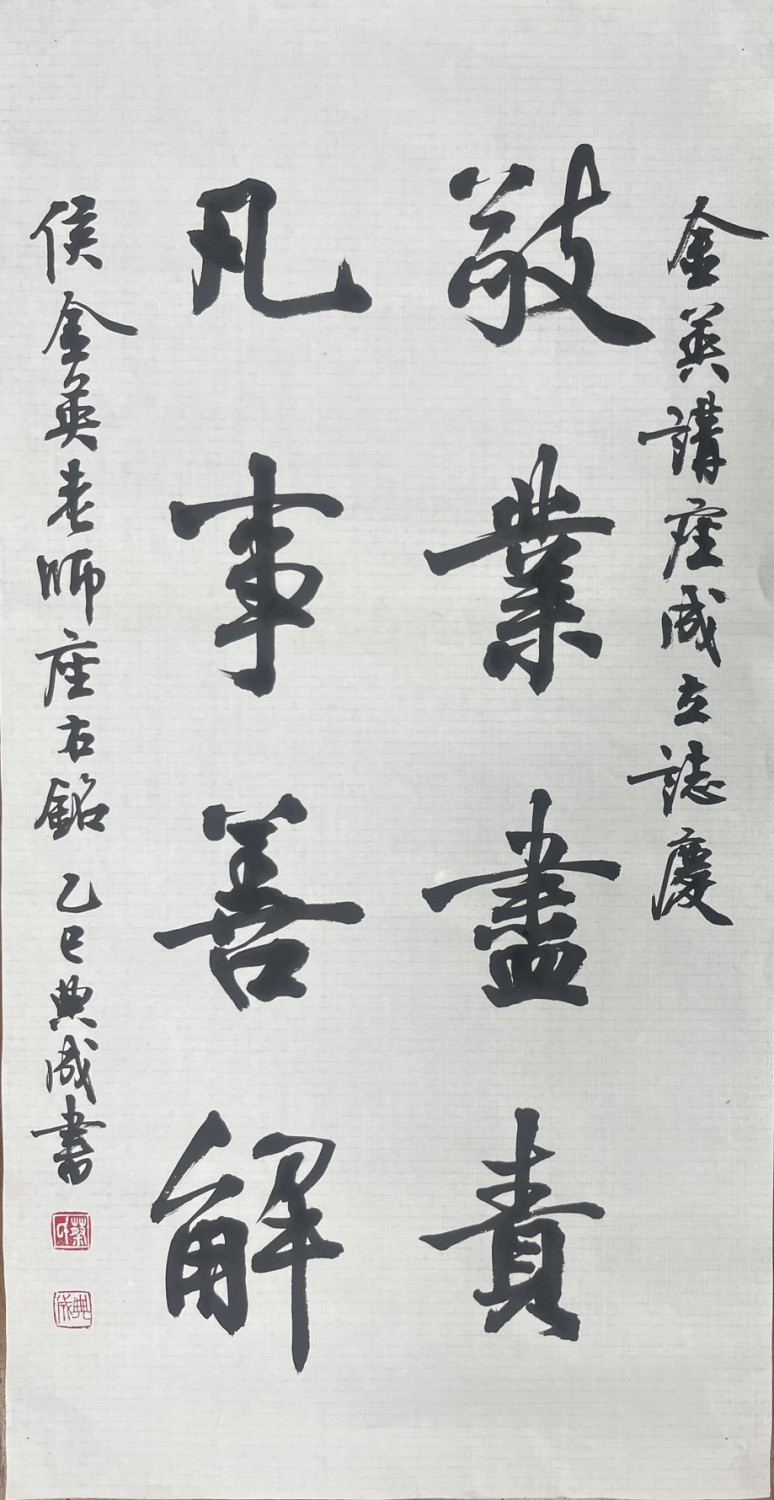 金英講座成立誌慶
敬業盡責
凡事善解
侯金英老師座右銘 乙巳典成書
典成